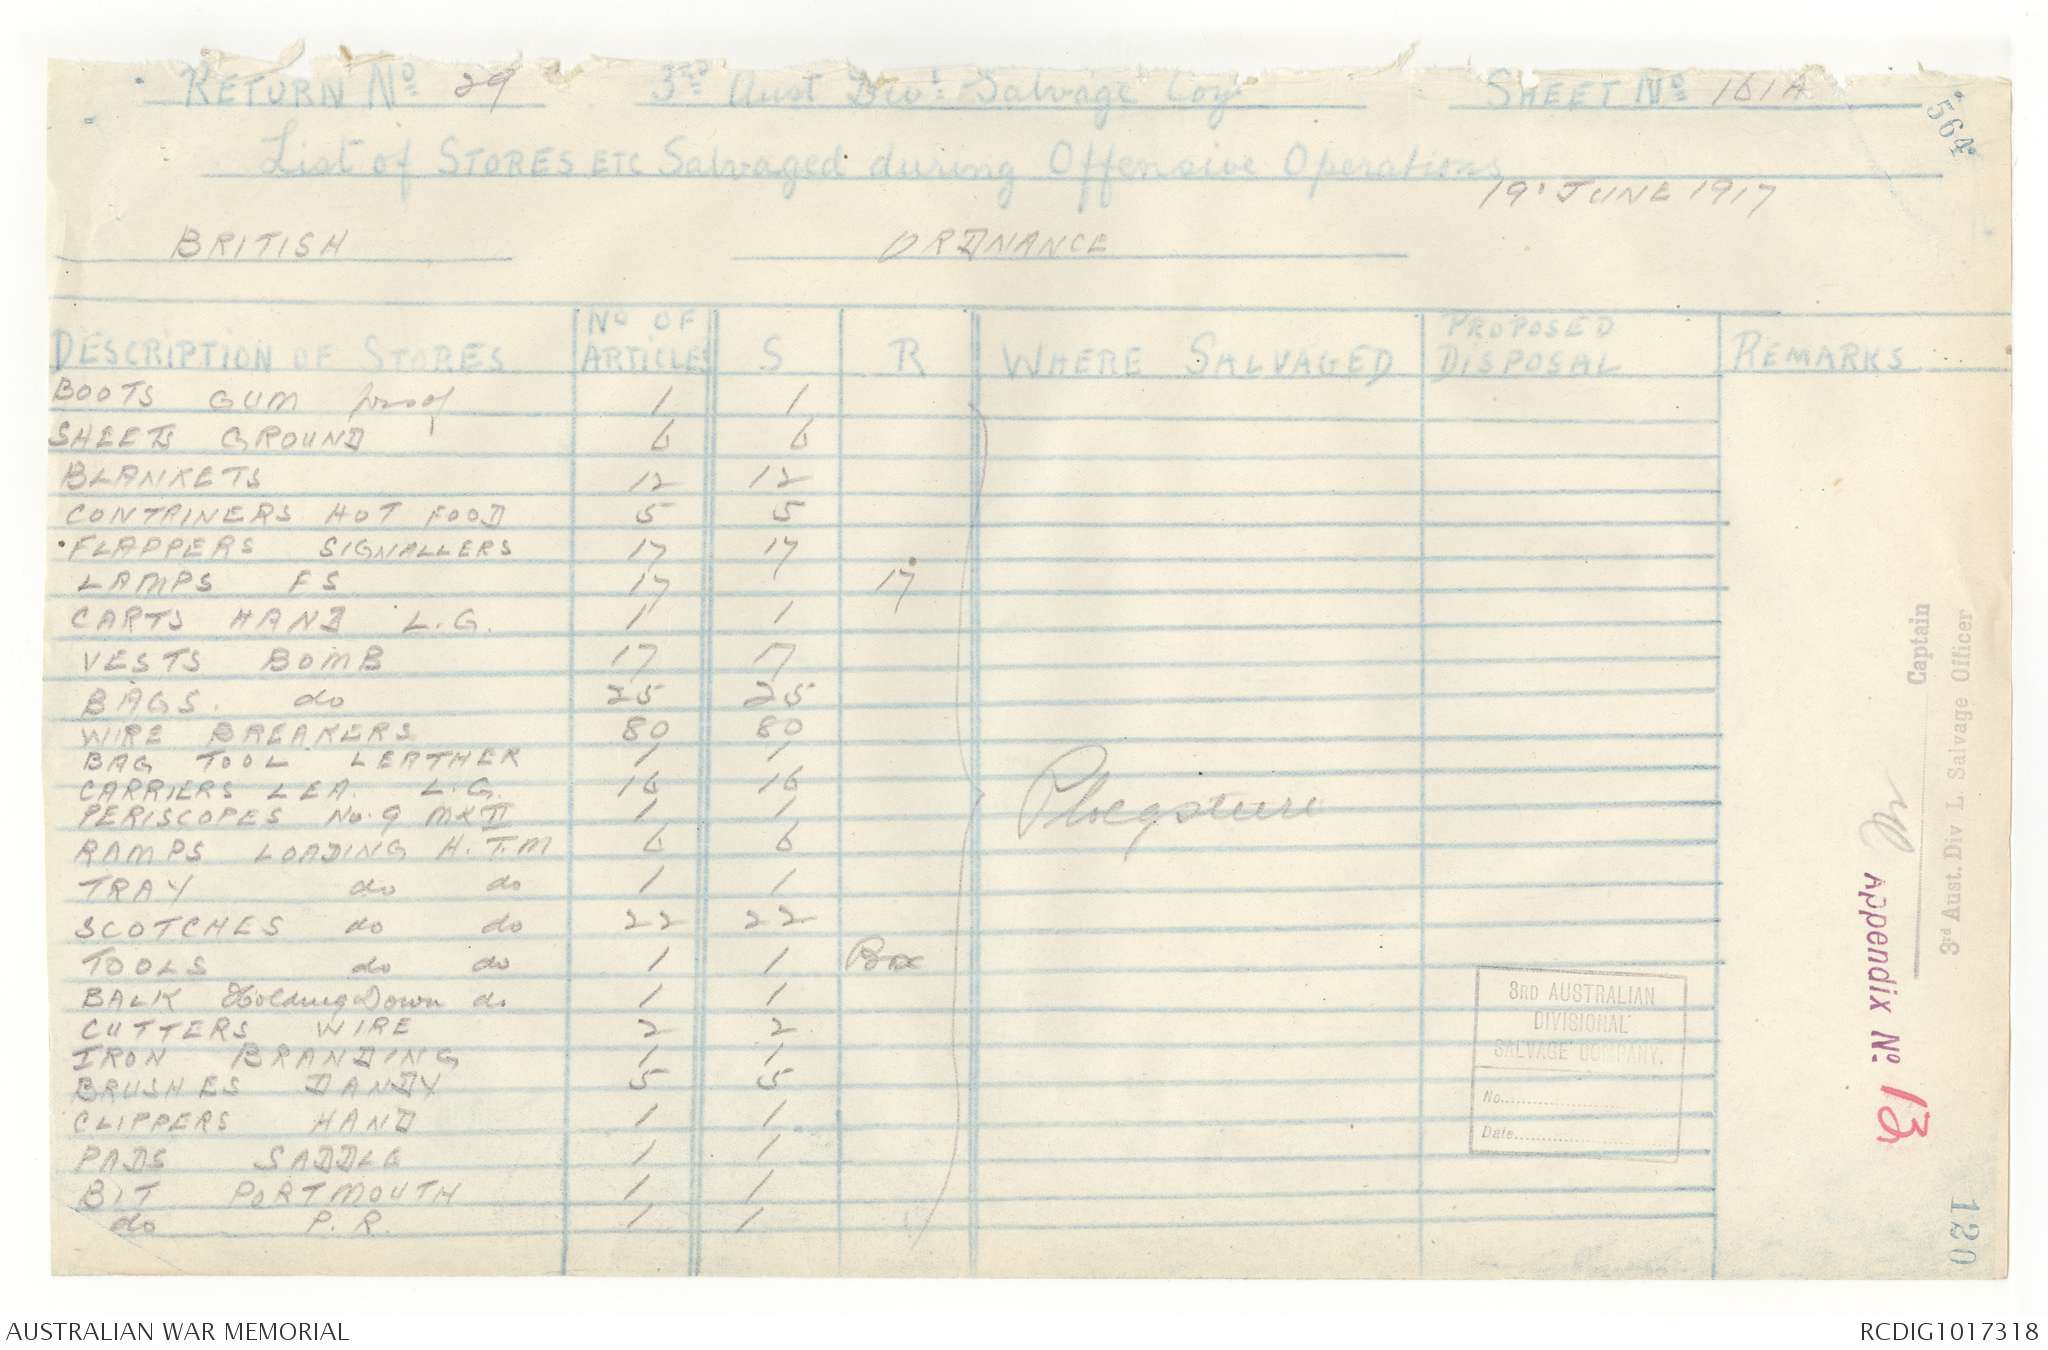 RETURN No. 29 3rd Aust Divnl Salvage Coy. SHEET No. 161A
564
List of STORES ETC Salvaged during Offensive Operations
19. JUNE 1917
BRITISH ORDNANCE
DESCRIPTION OF STORES No OF ARTICLES S R WHERE SALVAGED PROPOSED DISPOSAL REMARKS
BOOTS GUM proof 1 1
SHEETS GROUND 6 6
BLANKETS 12 12
CONTAINERS HOT FOOD 5 5
FLAPPERS SIGNALLERS 17 17
LAMPS FS 17 17
CARTS HAND L.G. 1 1
VESTS BOMB 17 17
BAGS. do 25 25
WIRE BREAKERS 80 80
BAG TOOL LEATHER 1 1
CARRIERS LEA. L.G. 16 16
PERISCOPES No. 9 MK II 1 1
Ploegsteert
RAMPS LOADING H.T.M 6 6
TRAY do do 1 1
SCOTCHES do do 22 22
TOOLS do do 1 1 Box
BALK Holding Down do 1 1
CUTTERS WIRE 2 2
IRON BRANDING 1 1
BRUSHES DANDY 5 5
CLIPPERS HAND 1 1
PADS SADDLE 1 1
BIT PORTMOUTH 1 1
do P.R. 1 1
3RD AUSTRALIAN
DIVISIONAL
SALVAGE COMPANY.
No.
Date
Captain
3rd Aust. Div L. Salvage Officer
Appendix No. 13
120
AUSTRALIAN WAR MEMORIAL RCDIG1017318